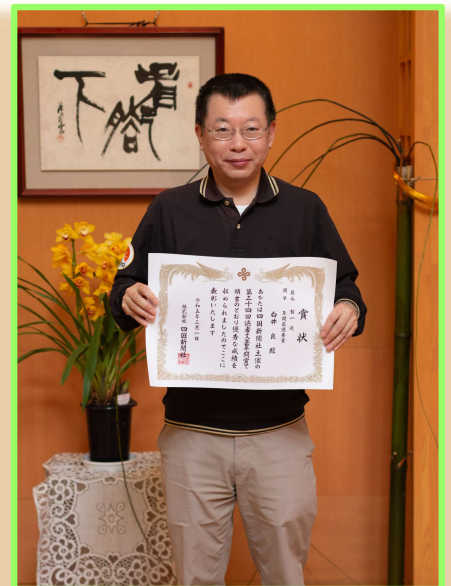 賞状
年間最優秀賞
白井 良 殿
あなたは四国新聞社主催の
第五十四回読者文芸年間賞で
頭書のとおり優秀な成績を
収められましたのでここに
表彰いたします
令和五年三月一日
株式会社 四国新聞社